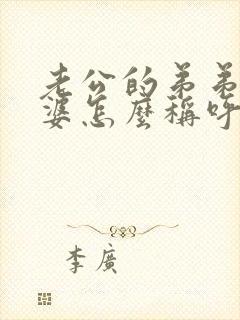 老公的弟弟
婆怎麼稱呼
李廣